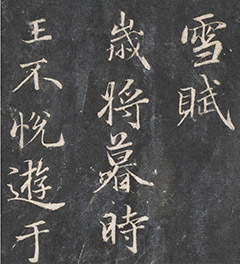 雪賦
歲將暮時
王不悅遊于